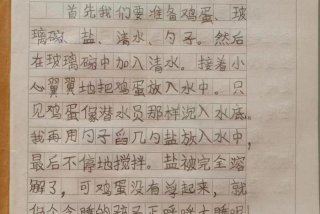 首先我们要准备鸡蛋、玻
璃碗、盐、清水、勺子。然后
在玻璃碗中加入清水。接着小
心翼翼地把鸡蛋放入水中。只
见鸡蛋像潜水员那样沉入水底。
我再用勺子舀几勺盐放入水中,
最后不停地搅拌。盐被完全溶
解了,可鸡蛋没有浮起来,就
像个贪睡的孩子正呼呼大睡呢